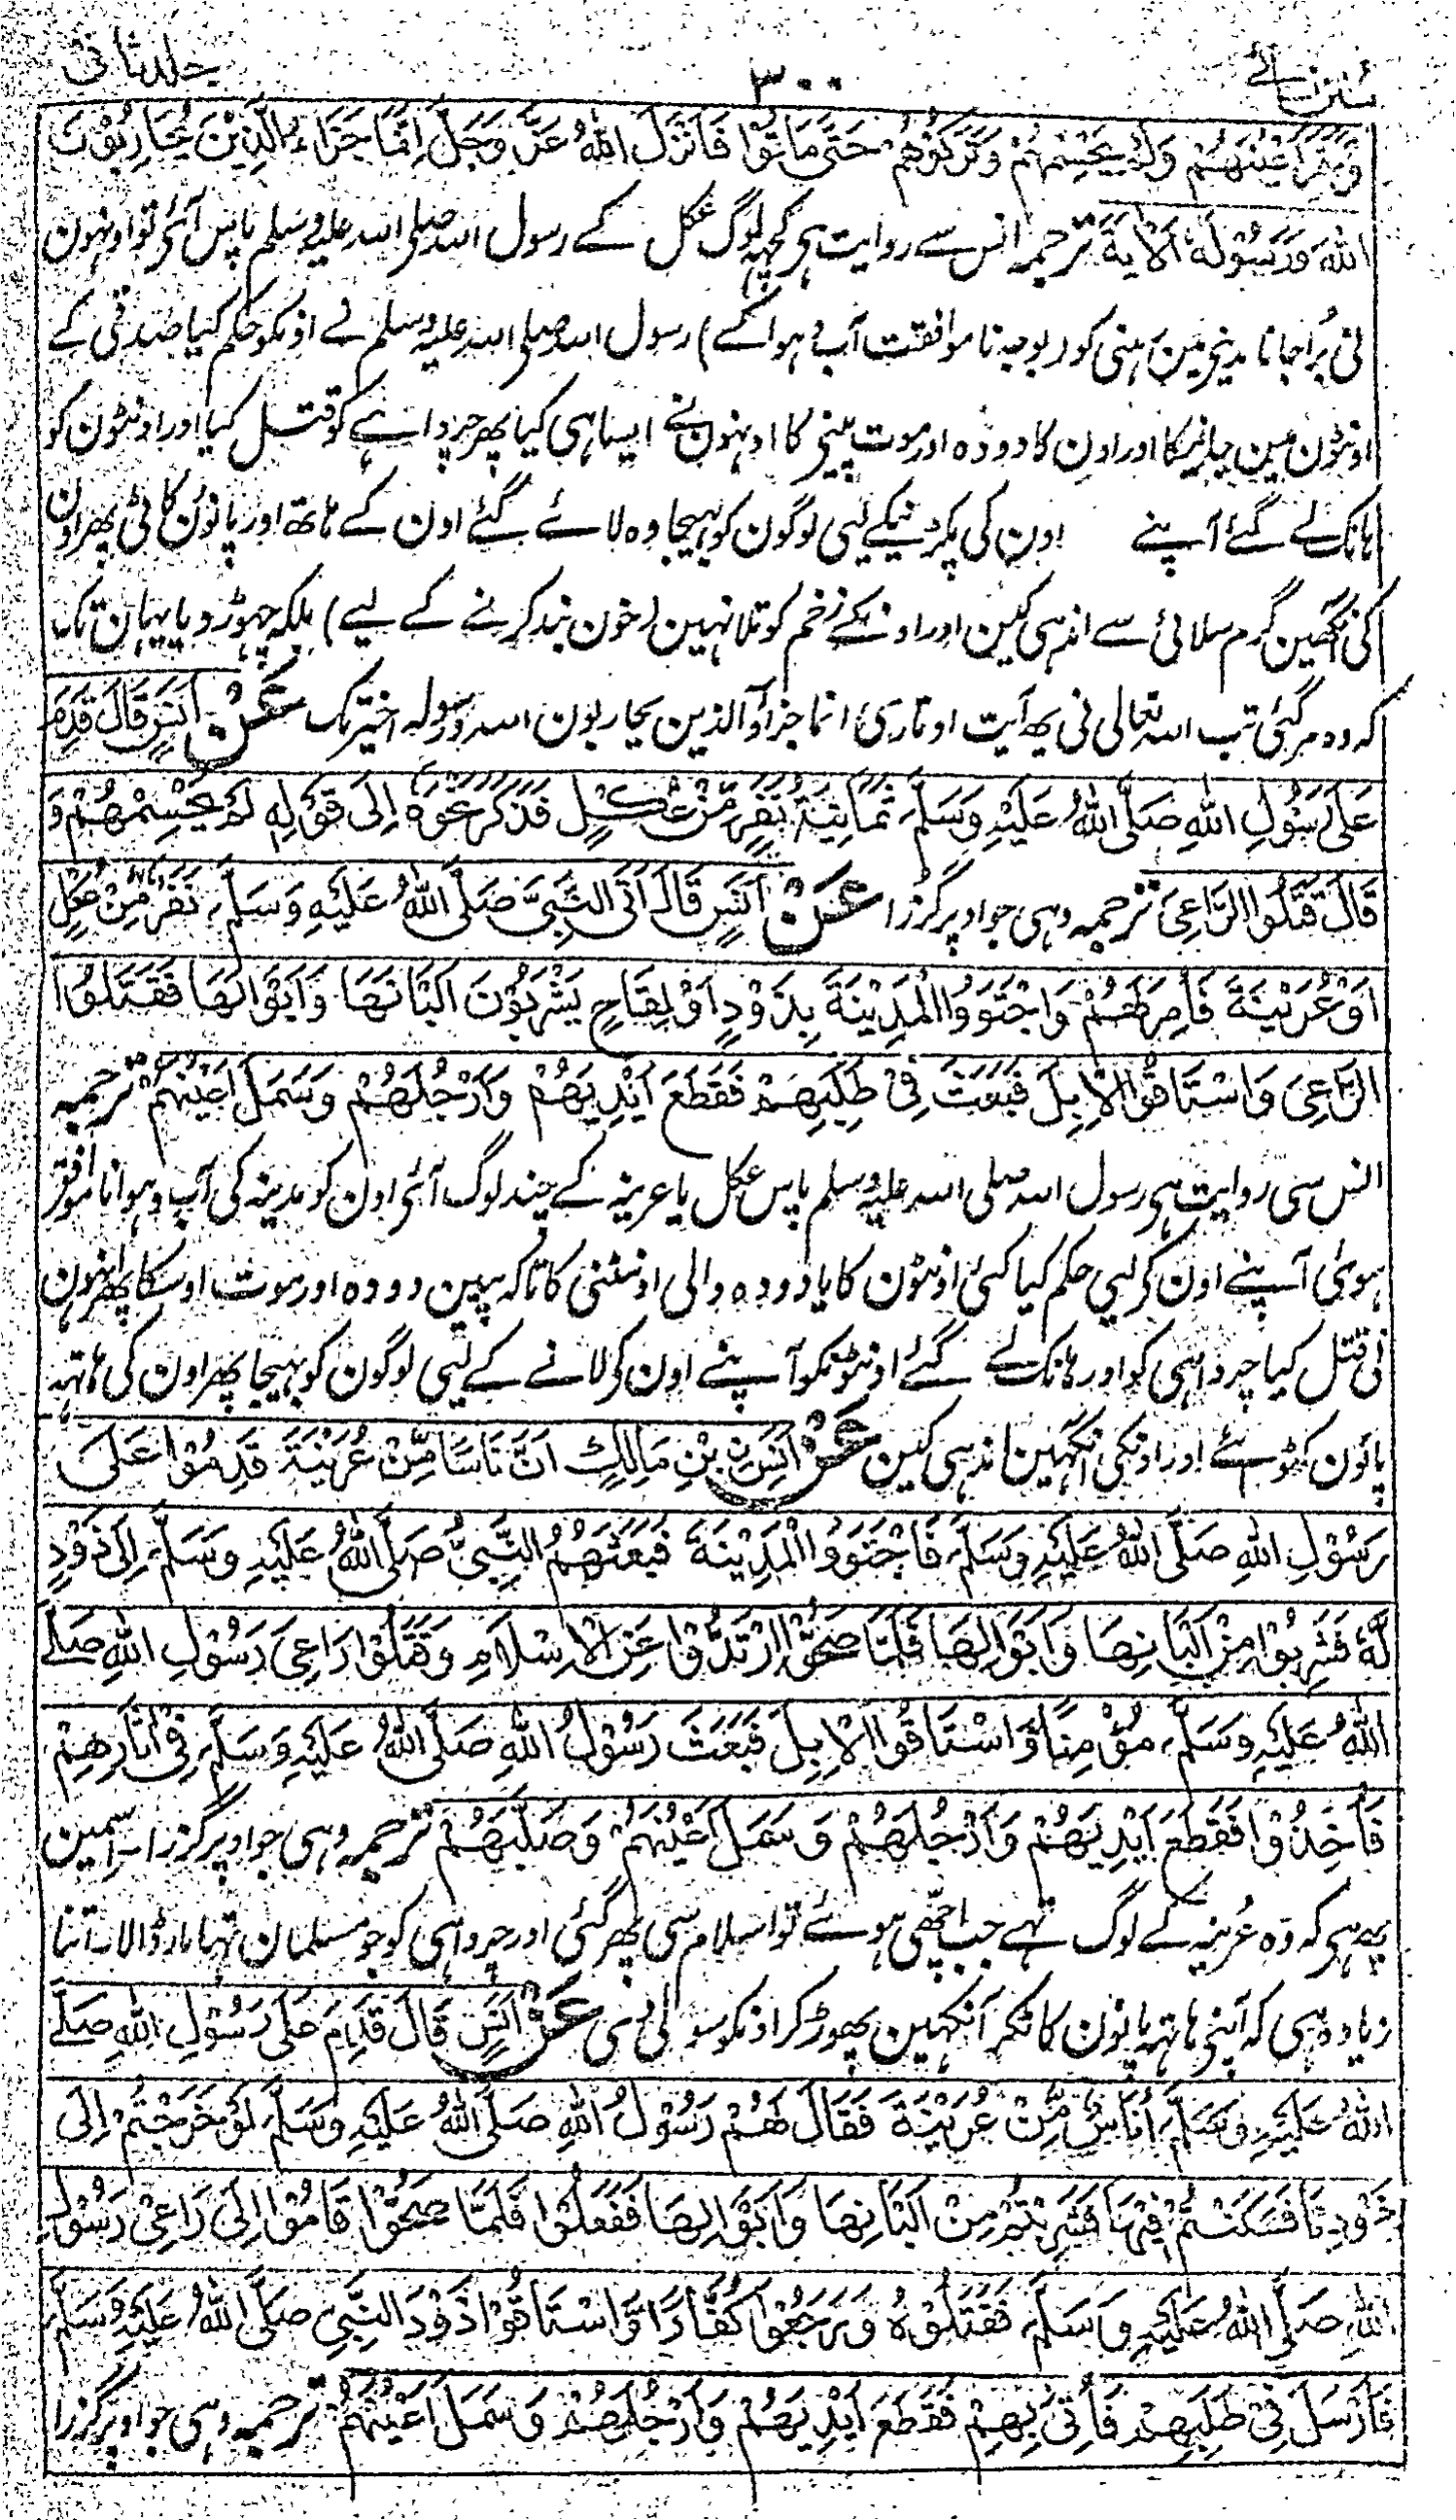 سنن نسائے ۳۰۰ جلد ثانی
وَسَمَّرَ اَعْيُنَهُمْ وَلَمْ يَحْسِمْهُمْ وَتَرَكَهُمْ حَتّٰى مَاتُوْا فَاَنْزَلَ اللّٰهُ عَزَّ وَجَلَّ اِنَّمَا جَزَاءُ الَّذِيْنَ يُحَارِبُوْنَ
اللّٰهَ وَرَسُوْلَهٗ اَلْاٰيَةَ ترجمہ انس سے روایت ہی کچہہ لوگ عکل کے رسول اللہ صلی اللہ علیہ وسلم پاس آئی تو اونہون
نی برا جانا مدینہ مین رہنی کو (بوجہ نا موافقت آب و ہوا کے) رسول اللہ صلی اللہ علیہ وسلم نے اونکو حکم کیا صدقی کے
اونٹون مین جانیکا اور اون کا دودہ اور موت پینی کا اونہون نے ایسا ہی کیا پھر چرواہے کو قتل کیا اور اونٹون کو
ہانک لے گئے آپنے اون کی پکڑنیکے لیی لوگون کو بہیجا وہ لائے گئے اون کے ہاتھ اور پانون کاٹی پھر اون
کی آنکہین گرم سلائی سے اندہی کین اور اونکے زخم کو تلا نہین (خون بند کرنے کے لیے) بلکہ چہوڑ دیا یہان تک
کہ وہ مر گئی تب اللہ تعالی نی یہ آیت اوتاری انما جزآؤ الذین یحاربون اللہ ورسولہ اخیر تک عَنْ اَنَسٍ قَالَ قَدِمَ
عَلٰى رَسُوْلِ اللّٰهِ صَلَّى اللّٰهُ عَلَيْهِ وَسَلَّمَ ثَمَانِيَةُ نَفَرٍ مِّنْ عُكْلٍ فَذَكَرَ نَحْوَهٗ اِلٰى قَوْلِهٖ لَمْ يَحْسِمْهُمْ وَ
قَالَ قَتَلُوا الرَّاعِيَ ترجمہ وہی جو اوپر گزرا عَنْ اَنَسٍ قَالَ اَتَى النَّبِيَّ صَلَّى اللّٰهُ عَلَيْهِ وَسَلَّمَ نَفَرٌ مِّنْ عُكْلٍ
اَوْ عُرَيْنَةَ فَاَمَرَ لَهُمْ وَاجْتَوَوُا الْمَدِيْنَةَ بِذَوْدٍ اَوْ لِقَاحٍ يَشْرَبُوْنَ اَلْبَانَهَا وَاَبْوَالَهَا فَقَتَلُوا
الرَّاعِيَ وَاسْتَاقُوا الْاِبِلَ فَبَعَثَ فِيْ طَلَبِهِمْ فَقَطَعَ اَيْدِيَهُمْ وَاَرْجُلَهُمْ وَسَمَلَ اَعْيُنَهُمْ ترجمہ
انس سی روایت ہی رسول اللہ صلی اللہ علیہ وسلم پاس عکل یا عرینہ کے چند لوگ آئی اون کو مدینہ کی آب و ہوا نا موافق
ہوئی آپنے اون کو لیی حکم کیا کئی اونٹون کا یا دودہ والی اونٹنی کا تاکہ پیین دودہ اور موت اوسکا پھر انہون
نی قتل کیا چرواہی کو اور ہانک لے گئے اونٹونکو آپنے اون کو لانے کے لیی لوگون کو بہیجا پھر اون کی ہاتہہ
پانون کٹوائے اور اونکی آنکہین اندہی کین عَنْ اَنَسِ بْنِ مَالِكٍ اَنَّ نَاسًا مِّنْ عُرَيْنَةَ قَدِمُوْا عَلٰى
رَسُوْلِ اللّٰهِ صَلَّى اللّٰهُ عَلَيْهِ وَسَلَّمَ فَاجْتَوَوُا الْمَدِيْنَةَ فَبَعَثَهُمُ النَّبِيُّ صَلَّى اللّٰهُ عَلَيْهِ وَسَلَّمَ اِلٰى ذَوْدٍ
لَّهٗ فَشَرِبُوْا مِنْ اَلْبَانِهَا وَاَبْوَالِهَا فَلَمَّا صَحُّوْا ارْتَدُّوْا عَنِ الْاِسْلَامِ وَقَتَلُوْا رَاعِيَ رَسُوْلِ اللّٰهِ صَلَّى
اللّٰهُ عَلَيْهِ وَسَلَّمَ مُؤْمِنًا وَّاسْتَاقُوا الْاِبِلَ فَبَعَثَ رَسُوْلُ اللّٰهِ صَلَّى اللّٰهُ عَلَيْهِ وَسَلَّمَ فِيْ اٰثَارِهِمْ
فَاُخِذُوْا فَقَطَعَ اَيْدِيَهُمْ وَاَرْجُلَهُمْ وَسَمَلَ اَعْيُنَهُمْ وَصَلَبَهُمْ ترجمہ وہی جو اوپر گزرا اسمین
یہ ہی کہ وہ عُرینہ کے لوگ تہے جب اچھی ہوئے تو اسلام سی پھر گئی اور چرواہی کو جو مسلمان تہا مار ڈالا اتنا
زیادہ ہی کہ آپنی ہاتہہ پانون کاٹکر آنکہین پھوڑ کر اونکو سولی دی عَنْ اَنَسٍ قَالَ قَدِمَ عَلٰى رَسُوْلِ اللّٰهِ صَلَّى
اللّٰهُ عَلَيْهِ وَسَلَّمَ اُنَاسٌ مِّنْ عُرَيْنَةَ فَقَالَ لَهُمْ رَسُوْلُ اللّٰهِ صَلَّى اللّٰهُ عَلَيْهِ وَسَلَّمَ لَوْ خَرَجْتُمْ اِلٰى
ذَوْدِنَا فَكُنْتُمْ فِيْهَا فَشَرِبْتُمْ مِنْ اَلْبَانِهَا وَاَبْوَالِهَا فَفَعَلُوْا فَلَمَّا صَحُّوْا قَامُوْا اِلٰى رَاعِيْ رَسُوْلِ
اللّٰهِ صَلَّى اللّٰهُ عَلَيْهِ وَسَلَّمَ فَقَتَلُوْهُ وَرَجَعُوْا كُفَّارًا وَّاسْتَاقُوْا ذَوْدَ النَّبِيِّ صَلَّى اللّٰهُ عَلَيْهِ وَسَلَّمَ
فَاَرْسَلَ فِيْ طَلَبِهِمْ فَاُتِيَ بِهِمْ فَقَطَعَ اَيْدِيَهُمْ وَاَرْجُلَهُمْ وَسَمَلَ اَعْيُنَهُمْ ترجمہ وہی جو اوپر گزرا